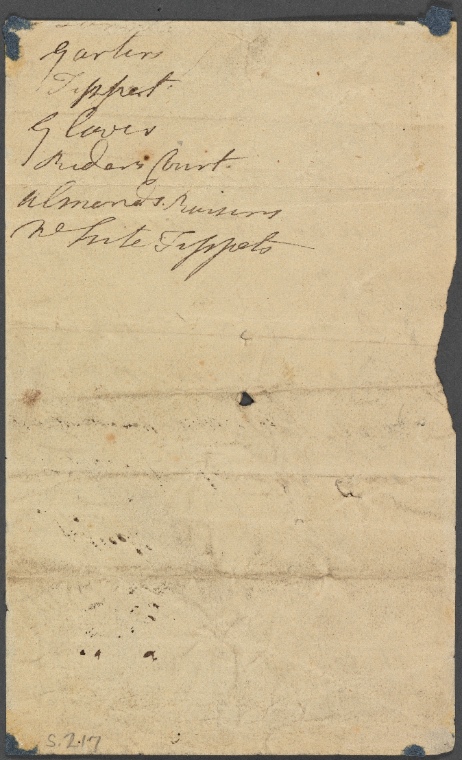 Garters
Tippet
Gloves
Riders Court.
Almonds Raisins
White Tippets
S.2.17